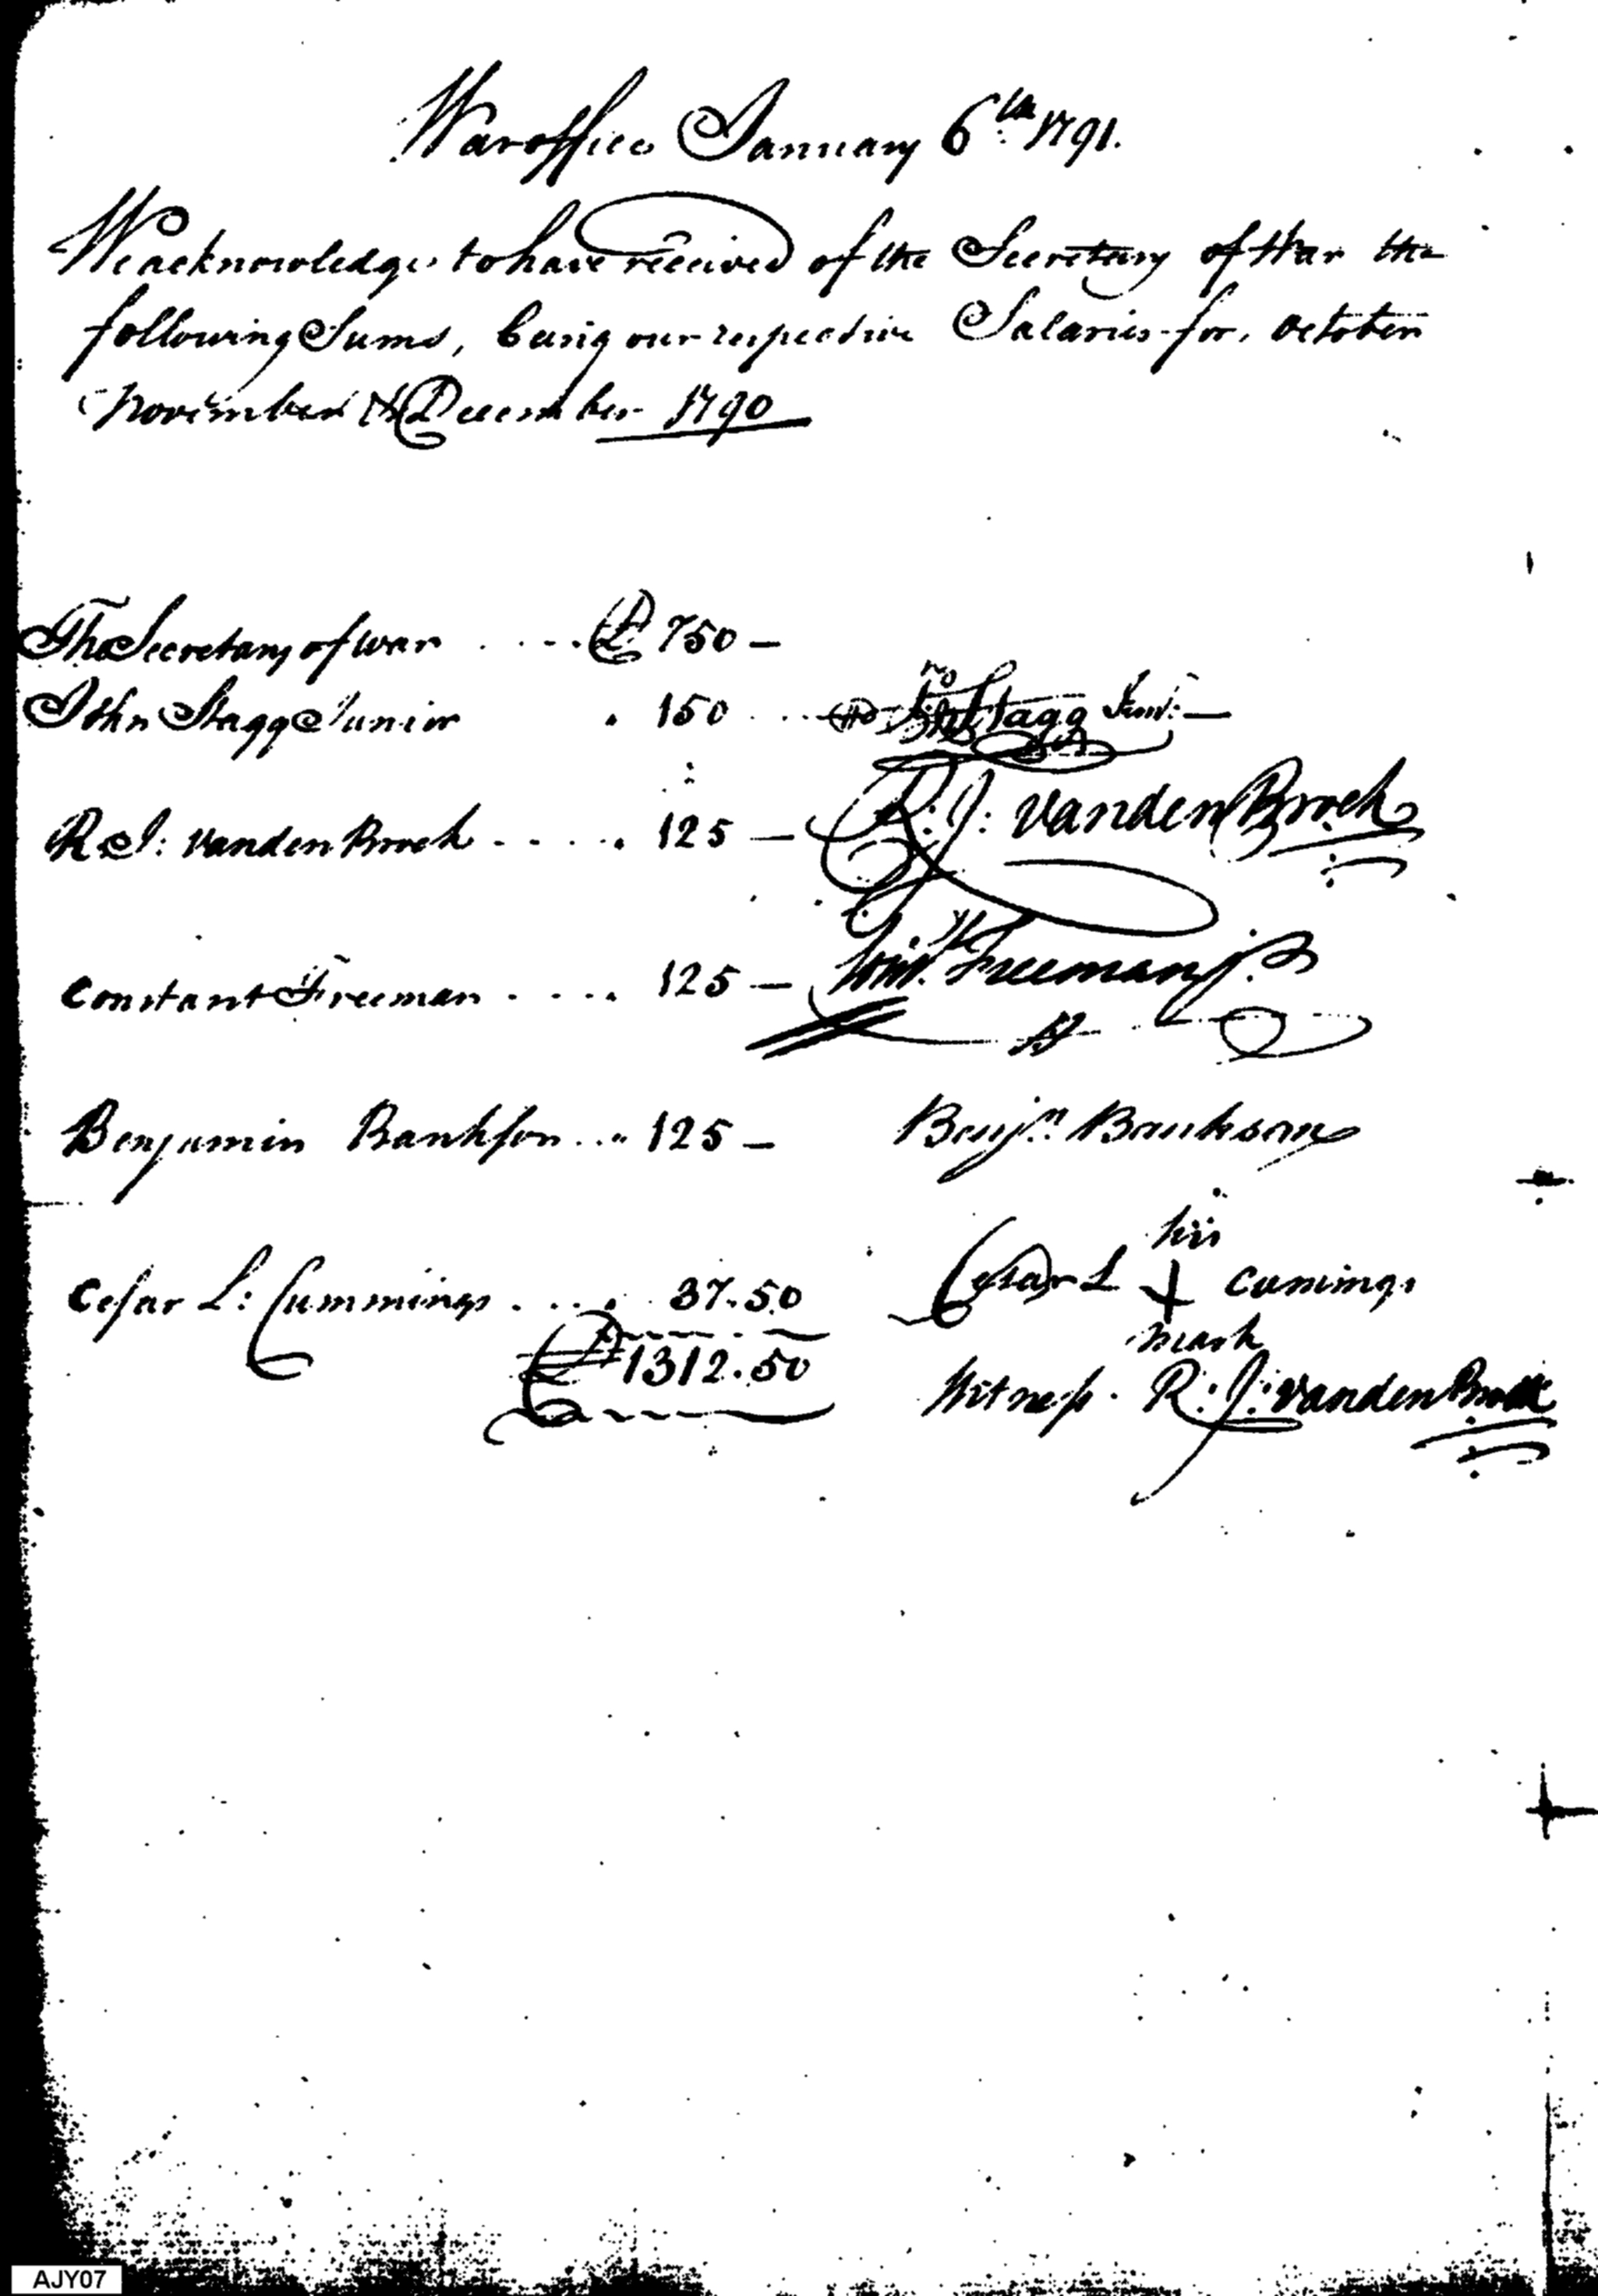 War office January 6th 1791.
We acknowledge to have received of the Secretary of War the
following Sums, being our respective Salaries for, October
November & December 1790
The Secretary of war .... D 750 —
John Stagg Junior . 150 ... Jno Stagg Junr. —
R. J: Vanden Broek ..... 125 — R: J: Vanden Broek
Constant Freeman .... 125 — Const. Freeman Jr.
Benjamin Bankson ... 125 — Benjn. Bankson
his
Cesar L: Cummings .... 37.50 Cesar L + Cummings
mark
D 1312.50
Witness. R: J: Vanden Broek
AJY07